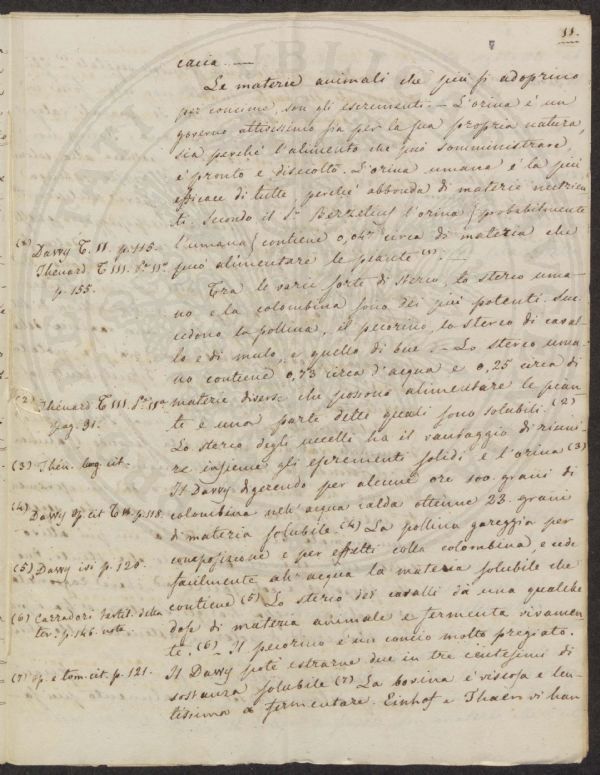 11.
cacia. —
Le materie animali che più si adoprino
per concime, son gli escrementi. — L'orina è un
governo attivissimo sia per la sua propria natura,
sia perchè l'alimento che può somministrare,
è pronto e disciolto. L'orina umana è la più
efficace di tutte, perchè abbonda di materie nutrien
ti. Secondo il Sr. Berzelius l'orina (probabilmente
l'umana) contiene 0,04 circa di materia che
può alimentare le piante (1). —
Tra le varie sorte di sterco, lo sterco uma-
no e la colombina sono dei più potenti. Suc-
cedono la pollina, il pecorino, lo sterco di caval-
lo e di mulo, e quello di bue. — Lo sterco uma-
no contiene 0,73 circa d'acqua e 0,25 circa di
materie diverse che possono alimentare le pian-
te e una parte delle quali sono solubili. (2)
Lo sterco degli uccelli ha il vantaggio di riuni-
re insieme gli escrementi solidi e l'orina (3)
Il Davvy digerendo per alcune ore 100. grani di
colombina nell'acqua calda ottenne 23. grani
di materia solubile (4) La pollina gareggia per
composizione e per effetti colla colombina, e cede
facilmente all'acqua la materia solubile che
contiene (5) Lo sterco dei cavalli dà una qualche
dose di materia animale e fermenta vivamen-
te. (6) Il pecorino è un concio molto pregiato.
Il Davvy potè estrarne due in tre centesimi di
sostanza solubile (7) La bovina è viscosa e len-
tissima a fermentare. Einhof e Thaer vi han
Davvy T. II. p. 115.
Thénard T III. Pe. IIa.
p. 155.
(2) Thénard T III. Pe. IIa
pag. 91.
(3) Thén. loug cit.
(4) Davvy op. cit T II. p. 118.
(5) Davvy ivi p. 120.
(6) Carradori fertil. della
ter. p. 146. note
(7) op. e tom. cit. p. 121.